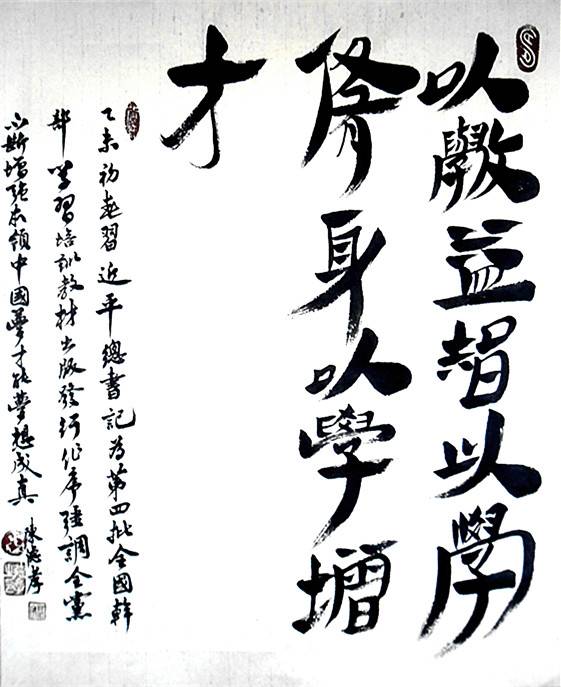 以斆益智以學
脩身以學增
才
乙未初習近平總書記为第四批全國幹
部学習培训教材出版發行作序强調全黨
不斷增强本領中國夢才能夢想成真
陳孝